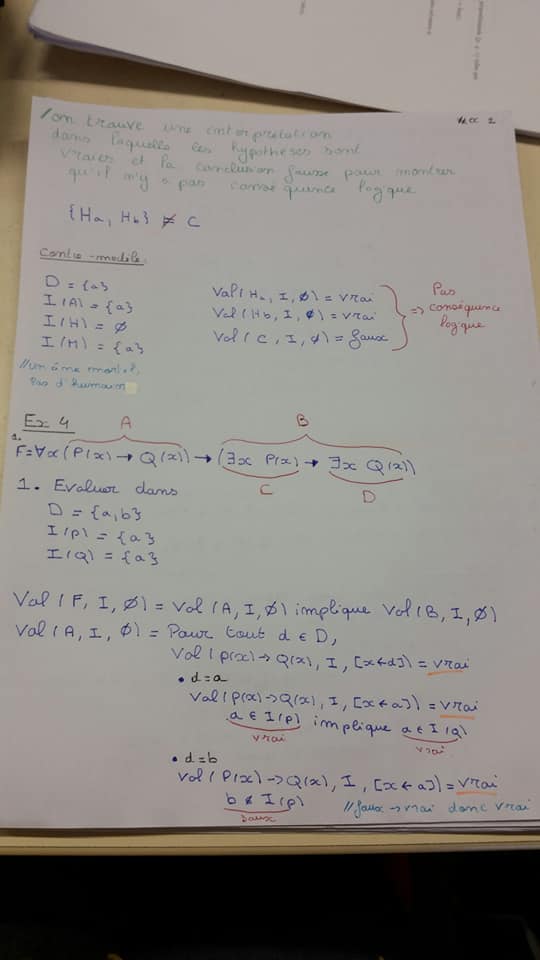 on trouve une interprétation
dans laquelle les hypothèses sont
vraies et la conclusion fausse pour montrer
qu'il n'y a pas conséquence logique
{Ha, Hb} ⊭ C
Contre-modèle:
D = {a}
I(A) = {a}
I(H) = ∅
I(M) = {a}
//un âme mortel,
pas d'humain
Val(Ha, I, ∅) = vrai
Val(Hb, I, ∅) = vrai
Val(C, I, ∅) = faux
=> Pas
conséquence
logique
Ex 4
A B
1.
F=∀x(P(x) → Q(x)) → (∃x P(x) → ∃x Q(x))
C D
1. Evaluer dans
D = {a,b}
I(P) = {a}
I(Q) = {a}
Val(F, I, ∅) = Val(A, I, ∅) implique Val(B, I, ∅)
Val(A, I, ∅) = Pour tout d ∈ D,
Val(P(x) → Q(x), I, [x←d]) = vrai
• d=a
Val(P(x) → Q(x), I, [x←a]) = vrai
a ∈ I(P) implique a ∈ I(Q)
vrai vrai
• d=b
Val(P(x) → Q(x), I, [x←a]) = vrai
b ∉ I(P) //faux → vrai donc vrai
faux